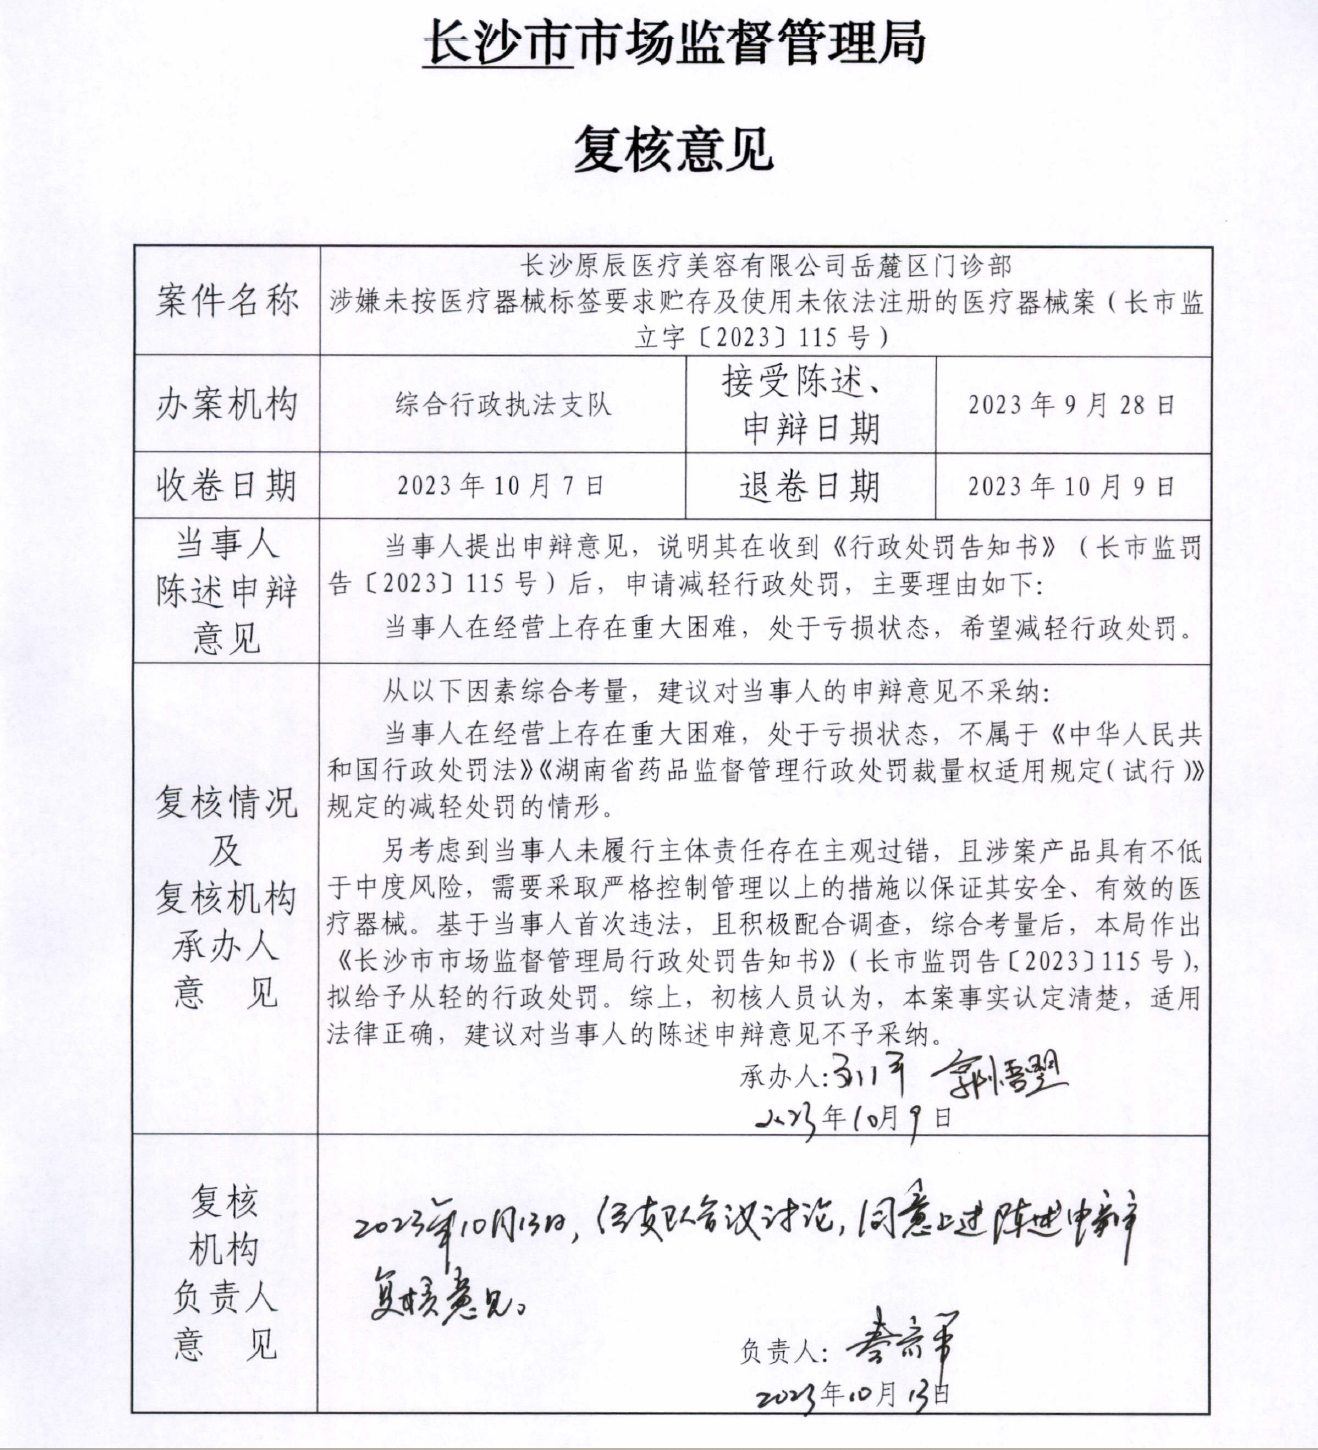 长沙市市场监督管理局
复核意见
案件名称
长沙原辰医疗美容有限公司岳麓区门诊部
涉嫌未按医疗器械标签要求贮存及使用未依法注册的医疗器械案（长市监
立字〔2023〕115号）
办案机构
综合行政执法支队
接受陈述、
申辩日期
2023年9月28日
收卷日期
2023年10月7日
退卷日期
2023年10月9日
当事人
陈述申辩
意见
当事人提出申辩意见，说明其在收到《行政处罚告知书》（长市监罚
告〔2023〕115号）后，申请减轻行政处罚，主要理由如下：
当事人在经营上存在重大困难，处于亏损状态，希望减轻行政处罚。
复核情况
及
复核机构
承办人
意 见
从以下因素综合考量，建议对当事人的申辩意见不采纳：
当事人在经营上存在重大困难，处于亏损状态，不属于《中华人民共
和国行政处罚法》《湖南省药品监督管理行政处罚裁量权适用规定（试行）》
规定的减轻处罚的情形。
另考虑到当事人未履行主体责任存在主观过错，且涉案产品具有不低
于中度风险，需要采取严格控制管理以上的措施以保证其安全、有效的医
疗器械。基于当事人首次违法，且积极配合调查，综合考量后，本局作出
《长沙市市场监督管理局行政处罚告知书》（长市监罚告〔2023〕115号），
拟给予从轻的行政处罚。综上，初核人员认为，本案事实认定清楚，适用
法律正确，建议对当事人的陈述申辩意见不予采纳。
承办人：
2023年10月9日
复核
机构
负责人
意 见
2023年10月13日，经支队会议讨论，同意上述陈述申辩
复核意见。
负责人：
2023年10月13日